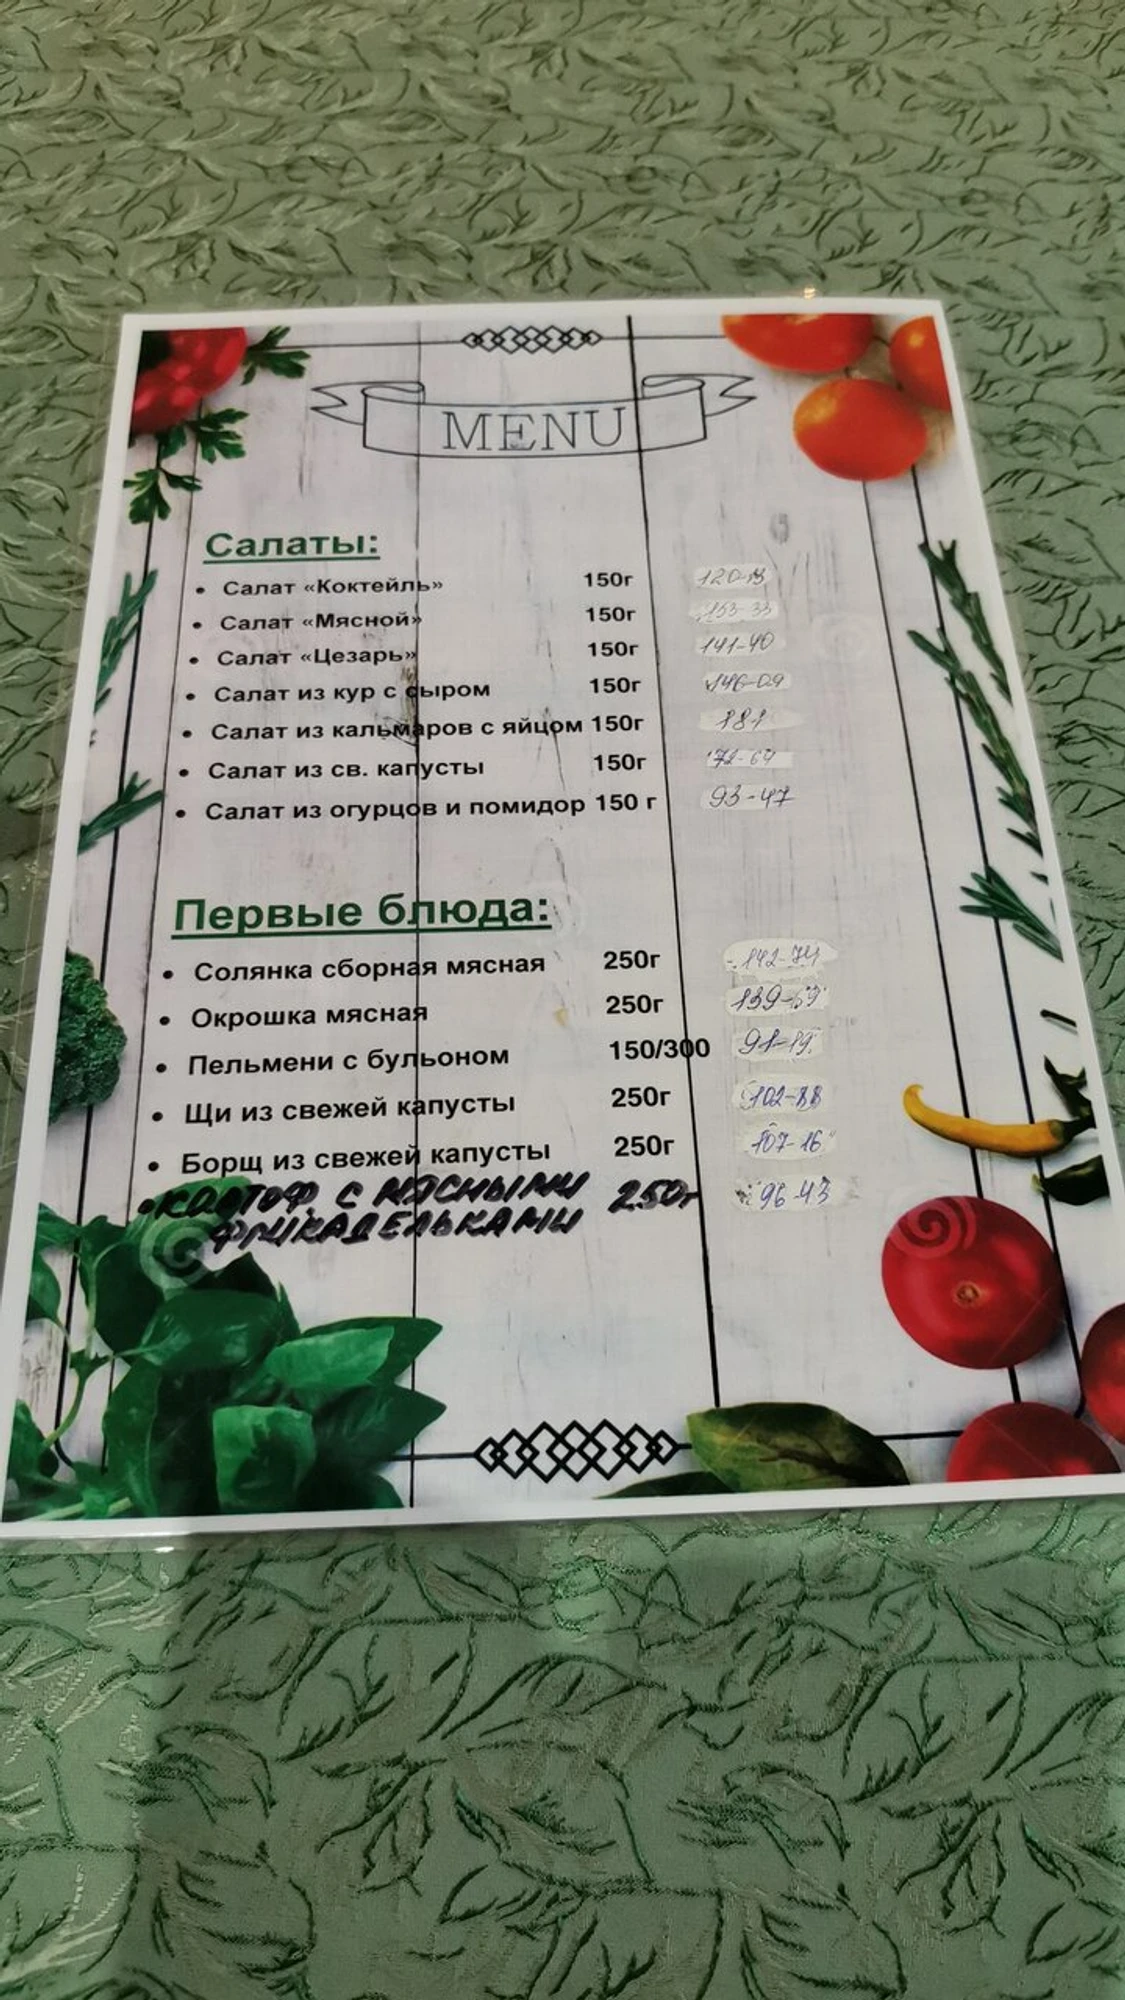 MENU
Салаты:
• Салат «Коктейль» 150г
• Салат «Мясной» 150г 153-33
• Салат «Цезарь» 150г 141-40
• Салат из кур с сыром 150г 146-09
• Салат из кальмаров с яйцом 150г 181
• Салат из св. капусты 150г
• Салат из огурцов и помидор 150 г 93-47
Первые блюда:
• Солянка сборная мясная 250г 142-74
• Окрошка мясная 250г
• Пельмени с бульоном 150/300 91-19
• Щи из свежей капусты 250г 102-88
• Борщ из свежей капусты 250г 107-16
• КАРТОФ. С МЯСНЫМИ 250г 96-43
ФРИКАДЕЛЬКАМИ